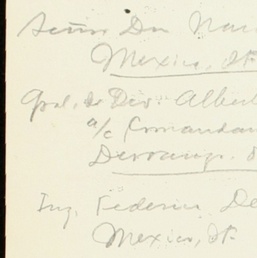 Señor Don Nar
Mexico, D.F.
Gral. de Div. Albert
a/c Comandan
Durango, D
Ing. Federico De
Mexico, D.F.